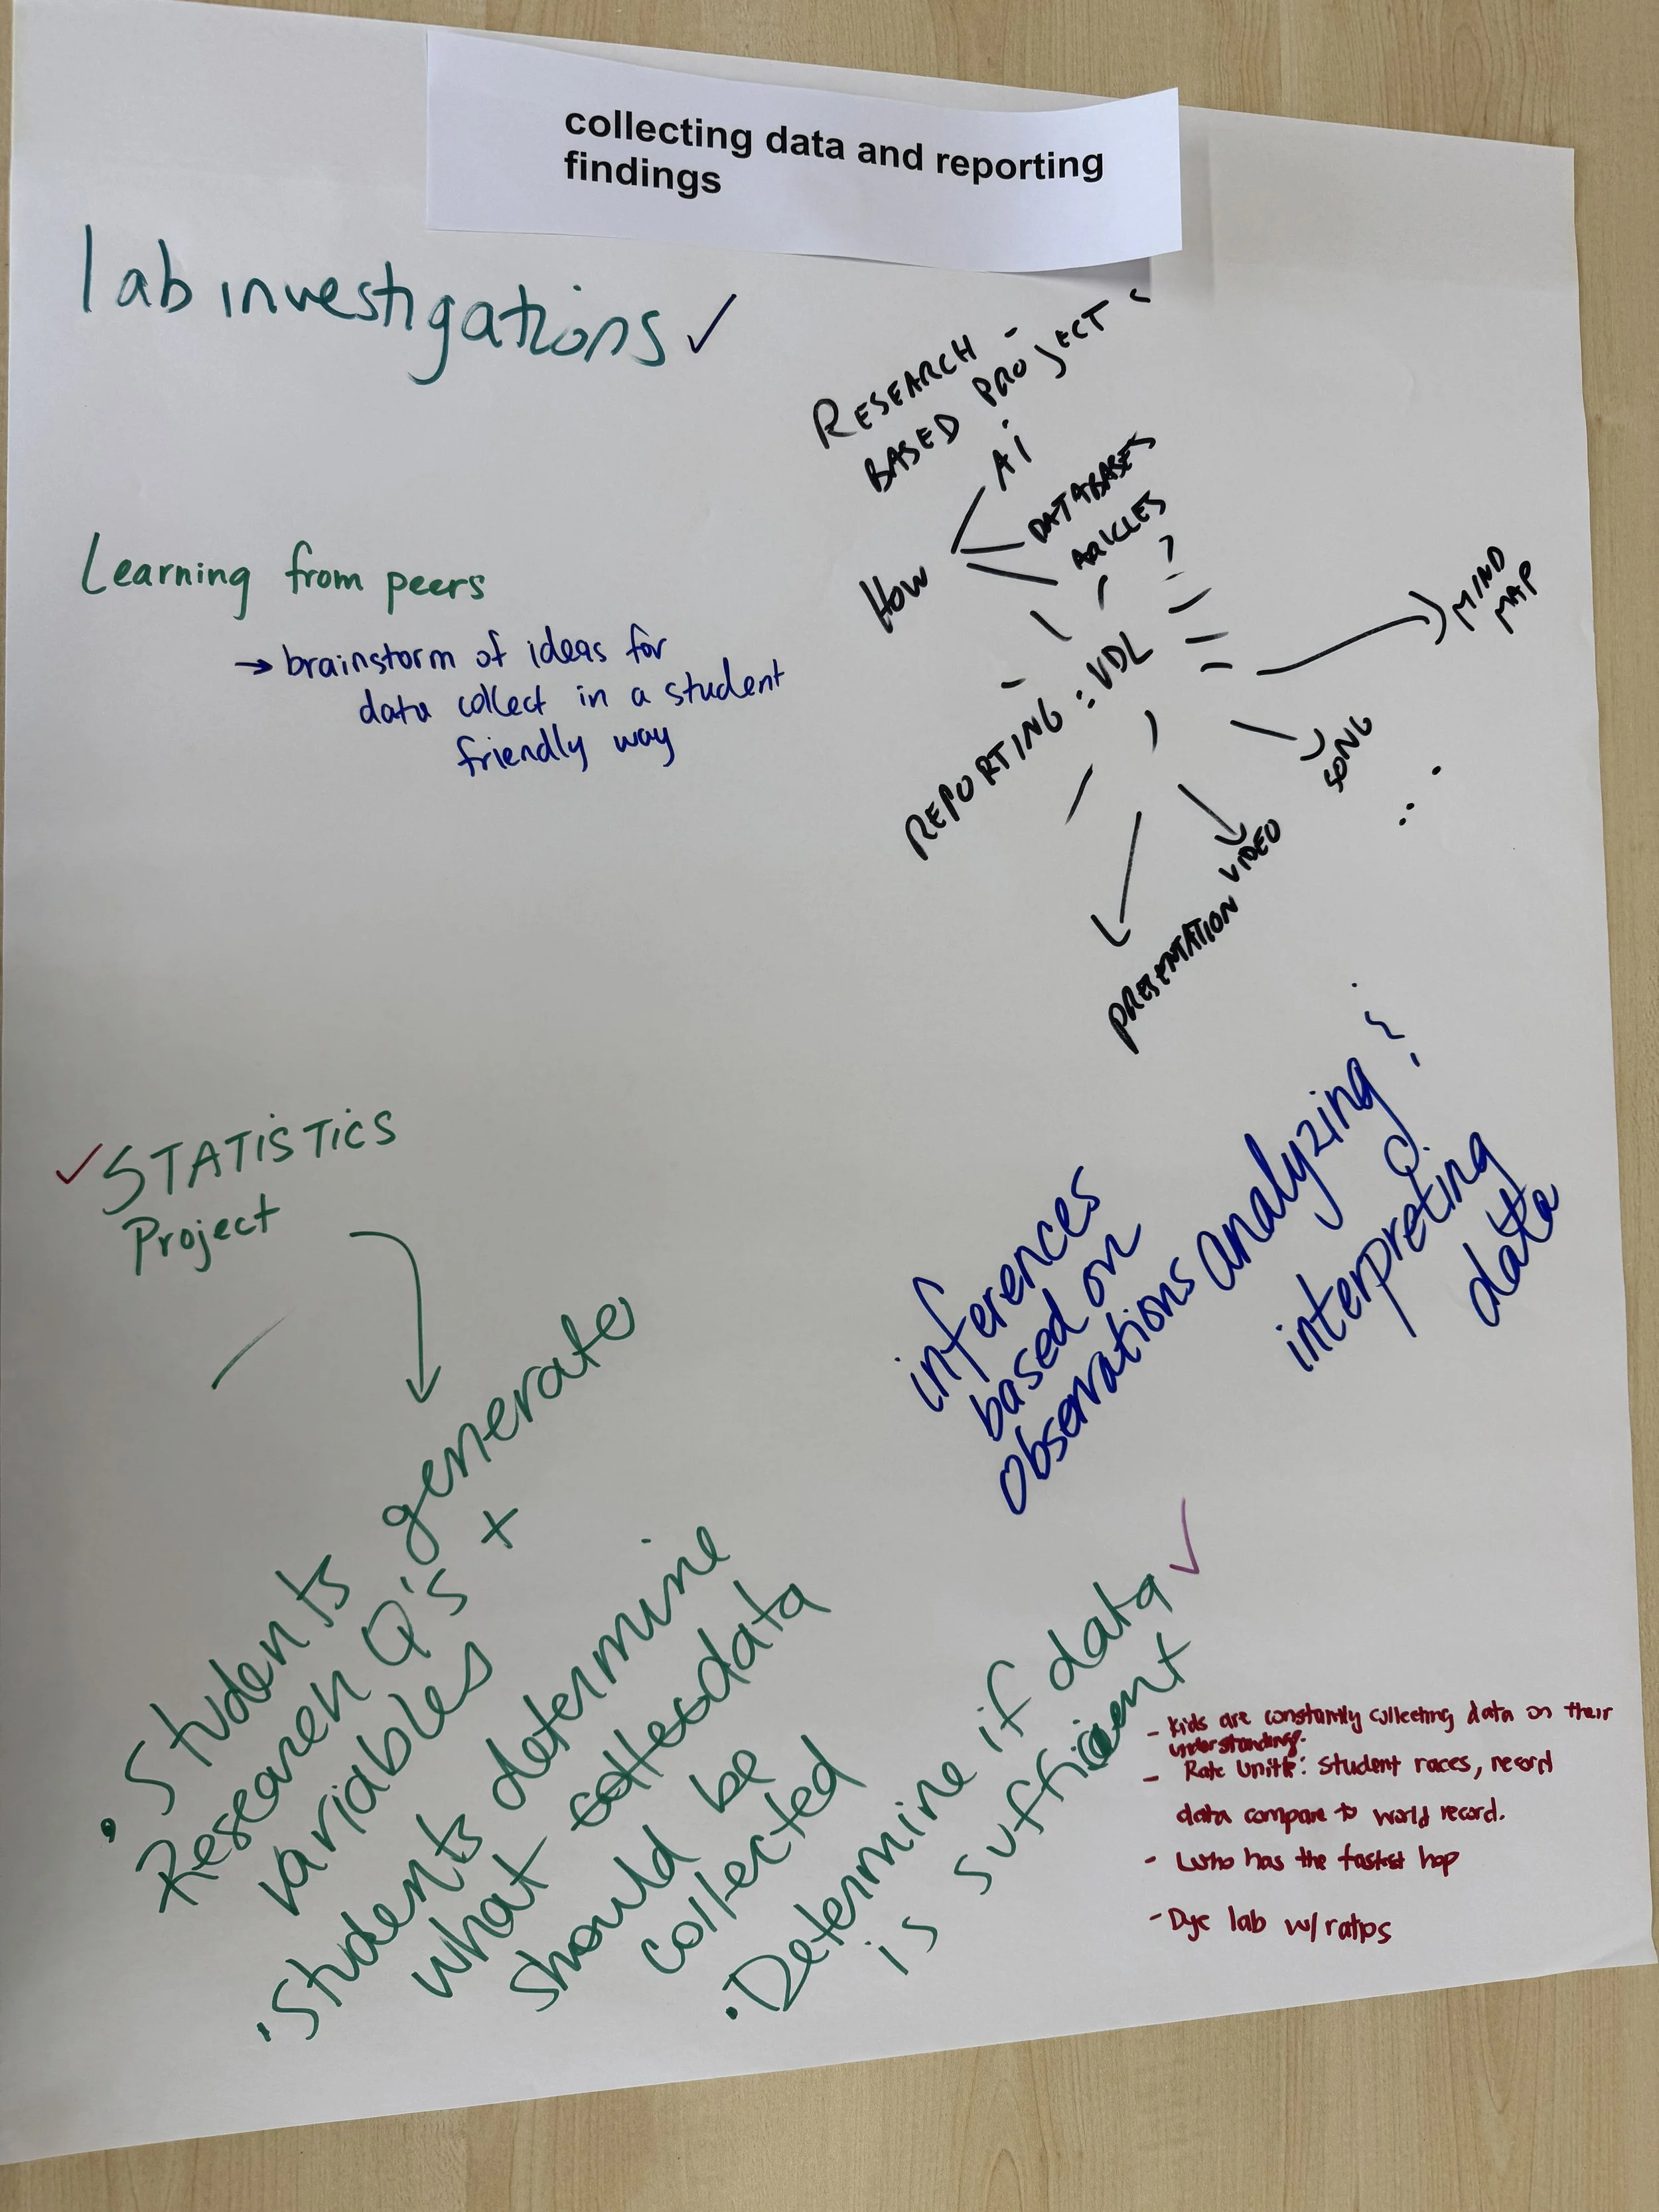 collecting data and reporting
findings
lab investigations ✓
RESEARCH -
BASED PROJECT :
How
AI
DATABASES
Learning from peers
→ brainstorm of ideas for
data collect in a student
friendly way
REPORTING : UDL
MIND
MAP
SONG
...
VIDEO
PRESENTATION
✓ STATISTICS
Project
inferences
based on
observations
analyzing &
interpreting
data
• Students generate
Research Q's +
variables
• Students determine
what data
should be
collected
• Determine if data ✓
is sufficient
- Kids are constantly collecting data on their
understanding.
- Rate Unit: Student races, record
data compare to world record.
- Who has the fastest hop
- Dye lab w/ ratios